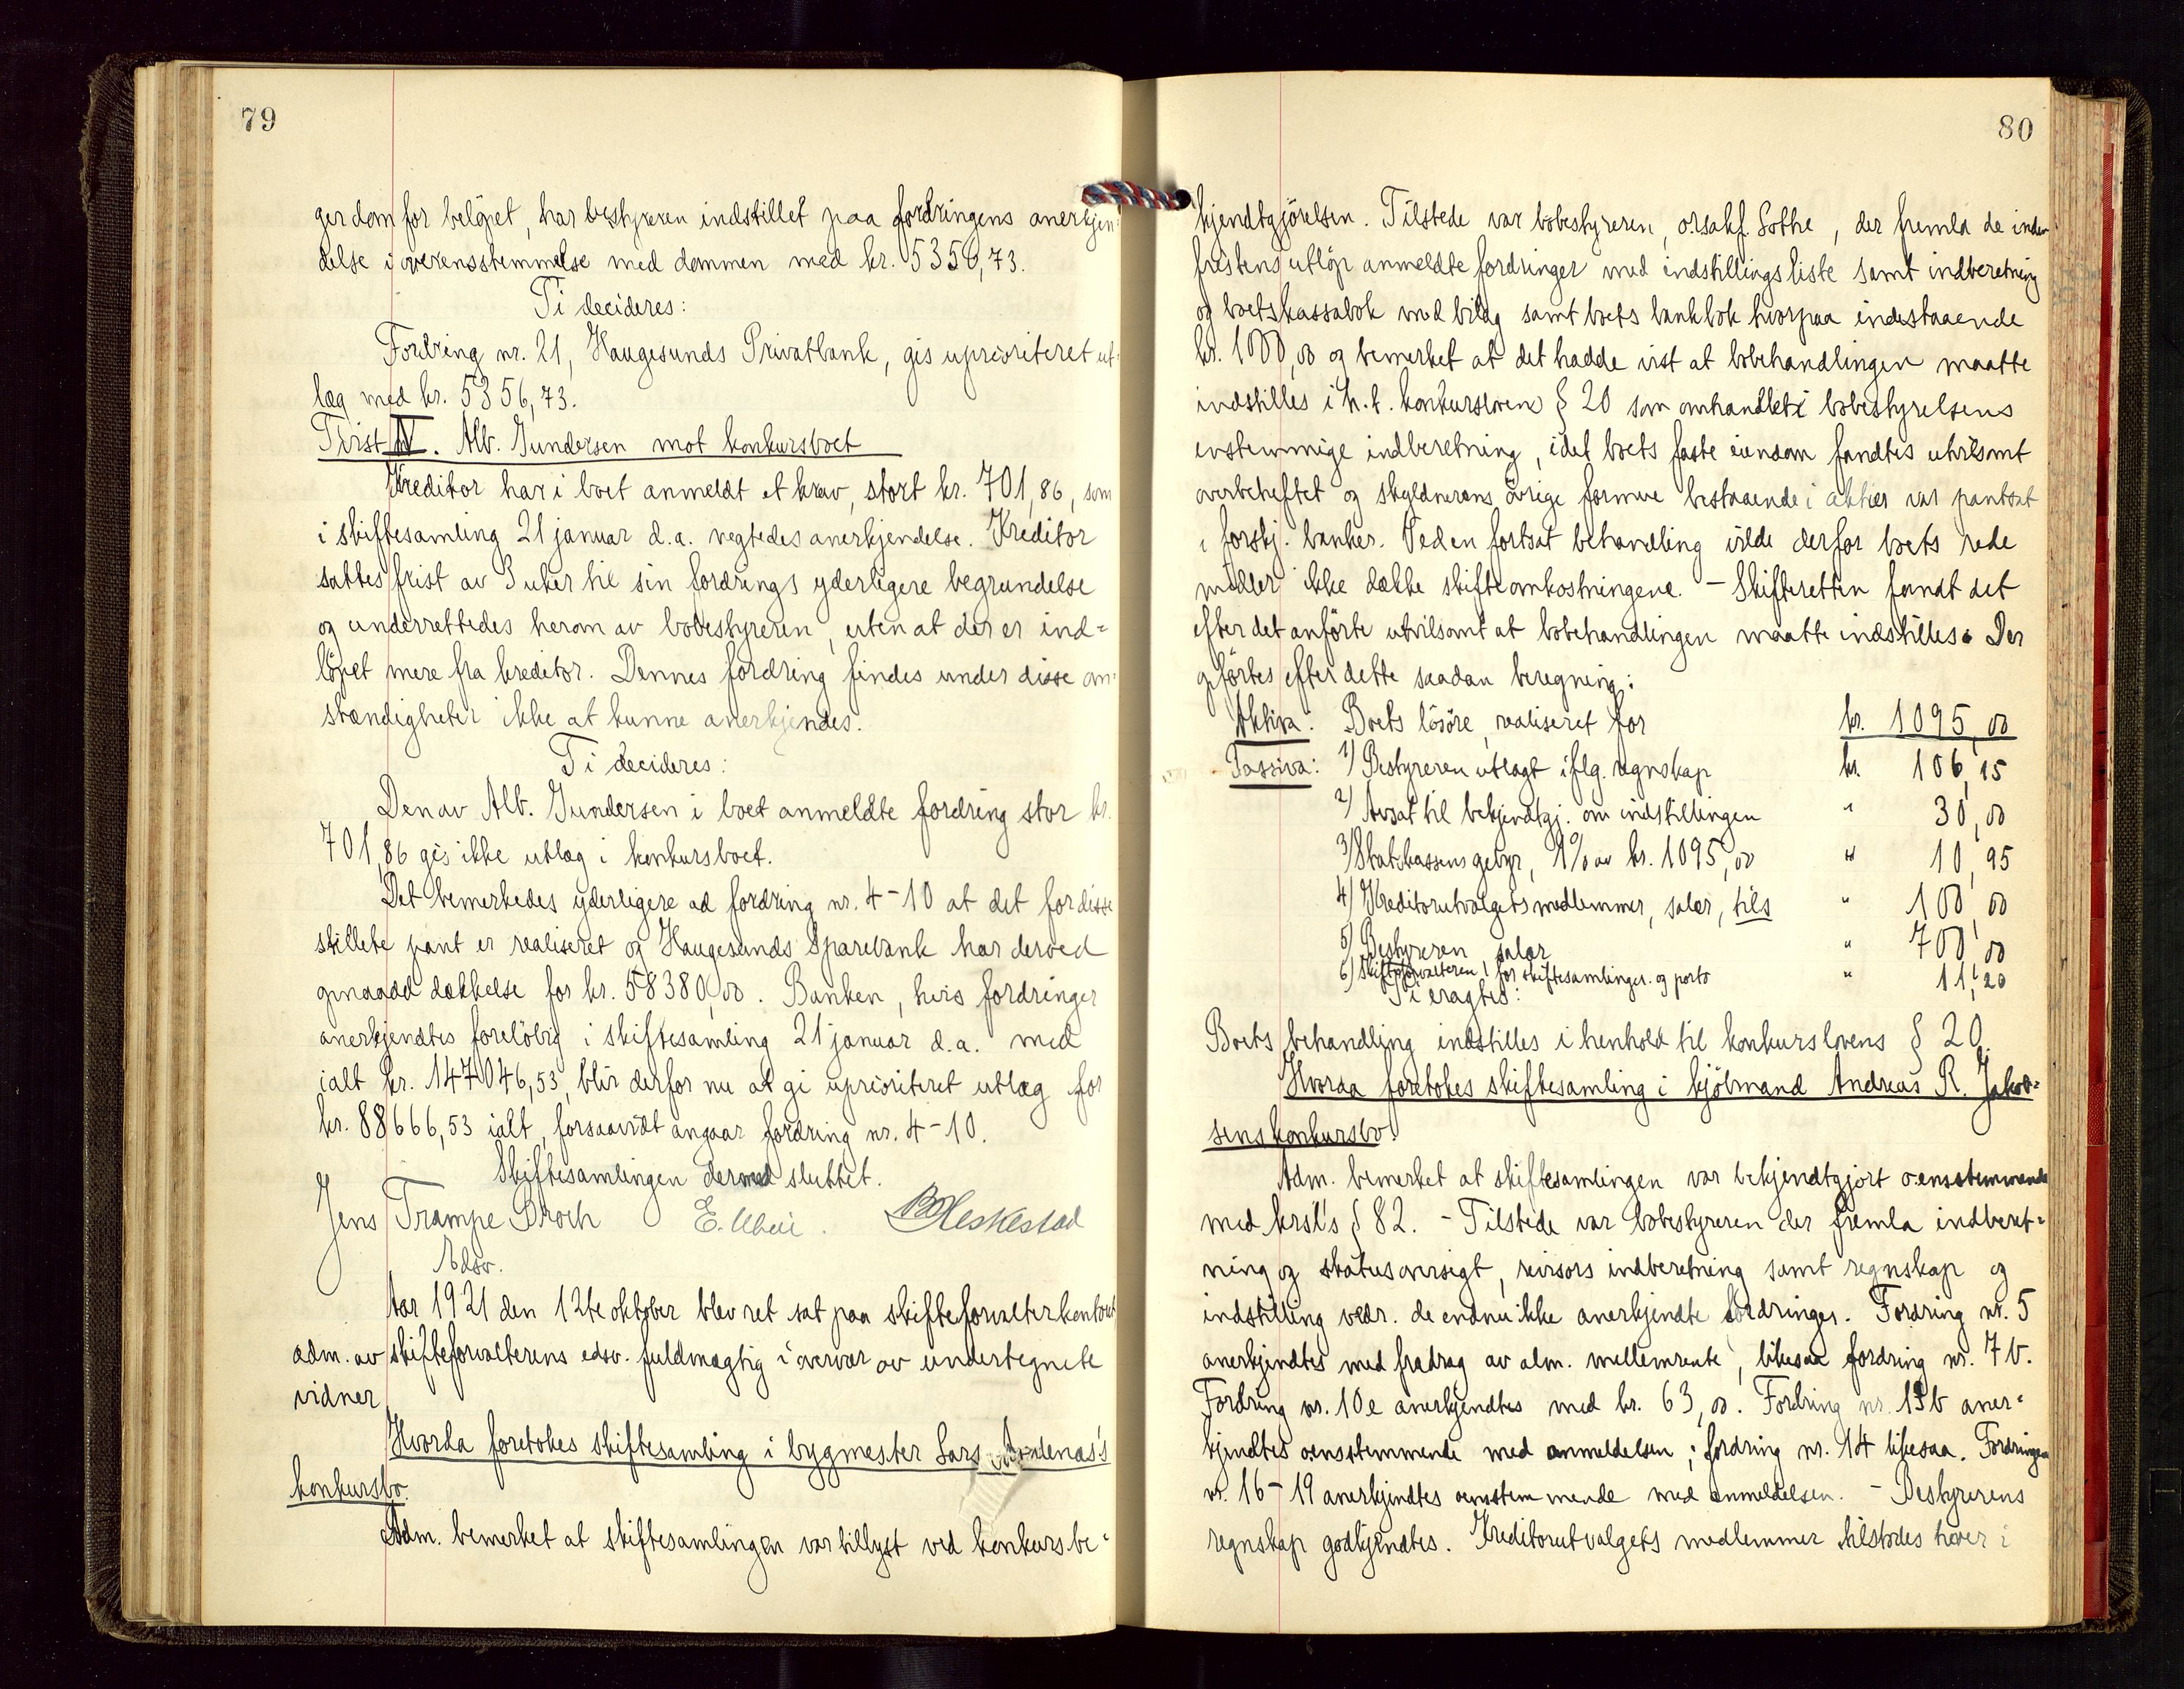 79
ger dom for beløpet, har bestyreren indstillet paa fordringens anerkjen-
delse i overensstemmelse med dommen med kr. 5356,73.
Ti decideres:
Fordring nr. 21, Haugesunds Privatbank, gis uprioriteret ut-
læg med kr. 5356,73.
Tvist IV. Alb. Gundersen mot konkursboet
Kreditor har i boet anmeldt et krav, stort kr. 701,86, som
i skiftesamling 21 januar d.a. negtedes anerkjendelse. Kreditor
sattes frist av 3 uker til sin fordrings yderligere begrundelse
og underrettedes herom av bobestyreren, uten at der er ind=
løpet mere fra kreditor. Dennes fordring findes under disse om-
stændigheter ikke at kunne anerkjendes.
Ti decideres:
Den av Alb. Gundersen i boet anmeldte fordring stor kr.
701,86 gis ikke utlæg i konkursboet.
Det bemerkedes yderligere ad fordring nr. 4-10 at det for disse
stillete pant er realiseret og Haugesunds Sparebank har derved
opnaadd dækkelse for kr. 58380,00. Banken, hvis fordringer
anerkjendtes foreløbig i skiftesamling 21 januar d.a. med
ialt kr. 147046,53, blir derfor nu at gi uprioriteret utlæg for
kr. 88666,53 ialt, forsaavidt angaar fordring nr. 4-10.
Skiftesamlingen dermed sluttet.
Jens Trampe Broch E. B Heskestad
Edsv.
Aar 1921 den 12te oktober blev ret sat paa skifteforvalterkontoret
adm. av skifteforvalterens edsv. fuldmægtig i overvær av undertegnete
vidner
Hvorda foretokes skiftesamling i bygmester Lars
konkursbo.
Adm. bemerket at skiftesamlingen var tillyst ved konkursbe-
80
kjendtgjørelsen. Tilstede var bobestyreren, o.r.sakf. Sothe, der fremla de inden
fristens utløp anmeldte fordringer med indstillingsliste samt indberetning
og boets kassabok med bilag samt boets bankbok hvorpaa indestaaende
kr. 1000,00 og bemerket at det hadde vist at bobehandlingen maatte
indstilles i h.t. konkursloven § 20 som omhandlet i bobestyrelsens
enstemmige indberetning, idet boets faste eiendom fandtes utvilsomt
overbeheftet og skyldnerens øvrige formue bestaaende i aktier var pantsat
i forskj. banker. Ved en fortsat behandling vilde derfor boets rede
midler ikke dække skifteomkostningene. - Skifteretten fandt det
efter det anførte utvilsomt at bobehandlingen maatte indstilles. Der
opførtes efter dette saadan beregning:
Aktiva: Boets løsøre, realiseret for kr. 1095,00
Passiva: 1) Bestyreren utlagt iflg. regnskap kr. 106,15
2) Avsat til bekjendtgj. om indstillingen " 30,00
3) Statskassens gebyr, 1% av kr. 1095,00 " 10,95
4) Kreditorutvalgets medlemmer, salær, tils " 100,00
5) Bestyreren salær " 700,00
6) Skifteforvalteren, for skiftesamlinger og porto " 11,20
Ti eragtes:
Boets behandling indstilles i henhold til konkurslovens § 20.
Hvorda foretokes skiftesamling i kjøbmand Andreas R. Jakob-
sens konkursbo.
Adm. bemerket at skiftesamlingen var bekjendtgjort o.ensstemmende
med krsl's § 82. - Tilstede var bobestyreren der fremla indberet-
ning og statusoversigt, revisors indberetning samt regnskap og
indstilling vedr. de endnu ikke anerkjendte fordringer. Fordring nr. 5
anerkjendtes med fradrag av alm. mellemrente, likesaa fordring nr. 7b.
Fordring nr. 10e anerkjendtes med kr. 63,00. Fordring nr. 13b aner-
kjendtes oensstemmende med anmeldelsen; fordring nr. 14 likesaa. Fordringen
nr. 16-19 anerkjendtes oensstemmende med anmeldelsen. - Bestyrerens
regnskap godkjendtes. Kreditorutvalgets medlemmer tilstodes hver i